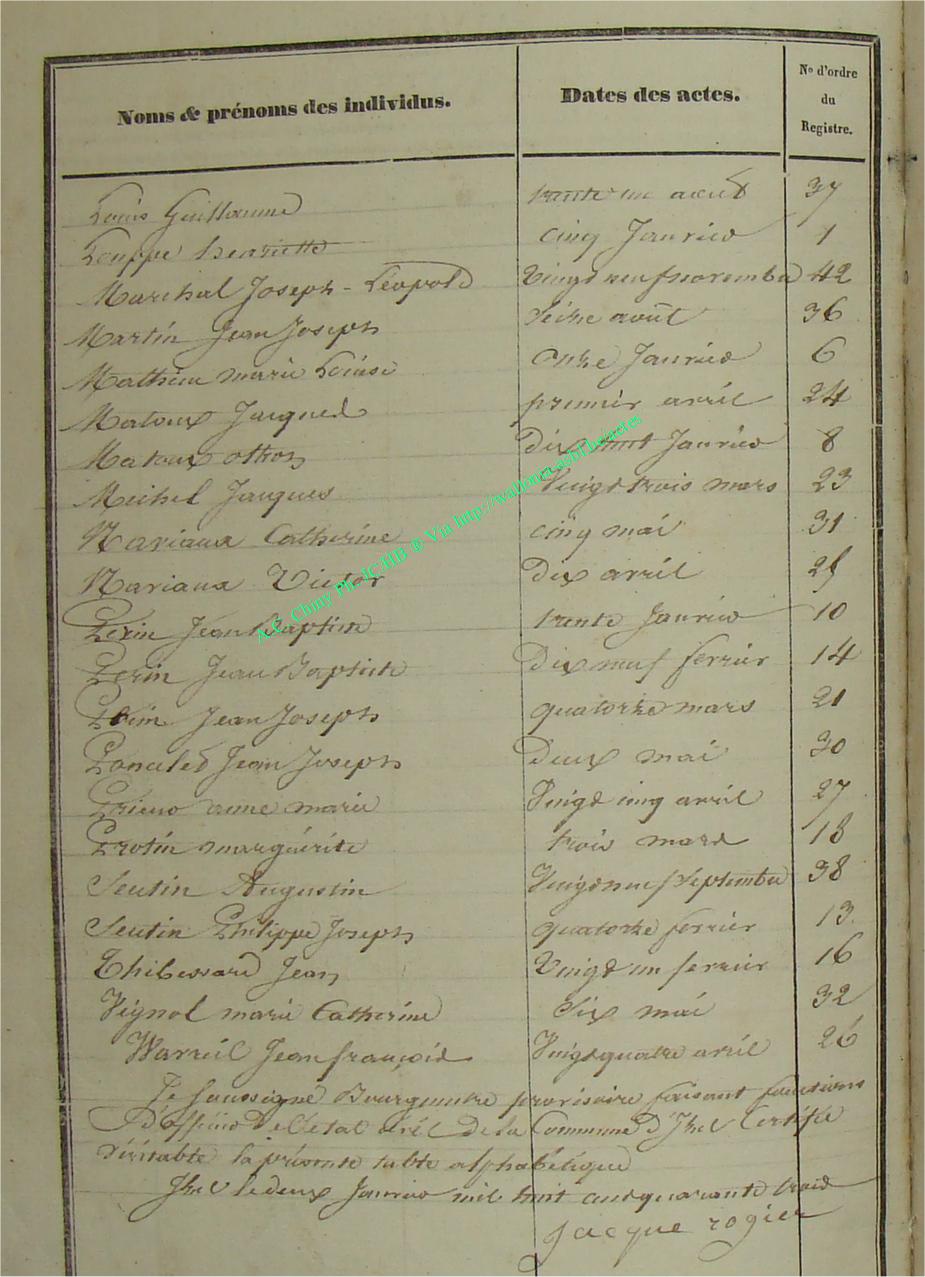 Noms & prénoms des individus. Dates des actes. No d'ordre du Registre.
Louis Guillaume trente un août 37
Louppe henriette cinq Janvier 1
Marchal Joseph - Léopold Vingt neuf novembre 42
Martin Jean Joseph Seize août 36
Mathieu marie Louise onze Janvier 6
Matoux Jacques premier avril 24
Matoux othon Dix huit Janvier 8
Michel Jacques Vingt trois mars 23
Nariaux Catherine cinq mai 31
Nariaux Victor Dix avril 25
Perin Jean Baptiste trente Janvier 10
Perin Jean Baptiste Dix neuf fevrier 14
Perin Jean Joseph quatorze mars 21
Poncelet Jean Joseph Deux mai 30
anne marie Vingt cinq avril 27
Protin marguérite trois mars 18
Seutin Augustin Vingt neuf septembre 38
Seutin Philippe Joseph quatorze fevrier 13
Thibessard Jean Vingt un fevrier 16
Vignol marie Catherine Six mai 32
Warzeil Jean françois Vingt quatre avril 26
Je soussigné Bourgmestre provisoire faisant fonctions
D'officier De l'état civil de la Commune D'Izel Certifie
véritable la présente table alphabétique
Izel le deux Janvier mil huit cent quarante trois
jacque rogier
A.E. Chiny Ph. JCHB ® Via http://wallonia.asbl.be/actes